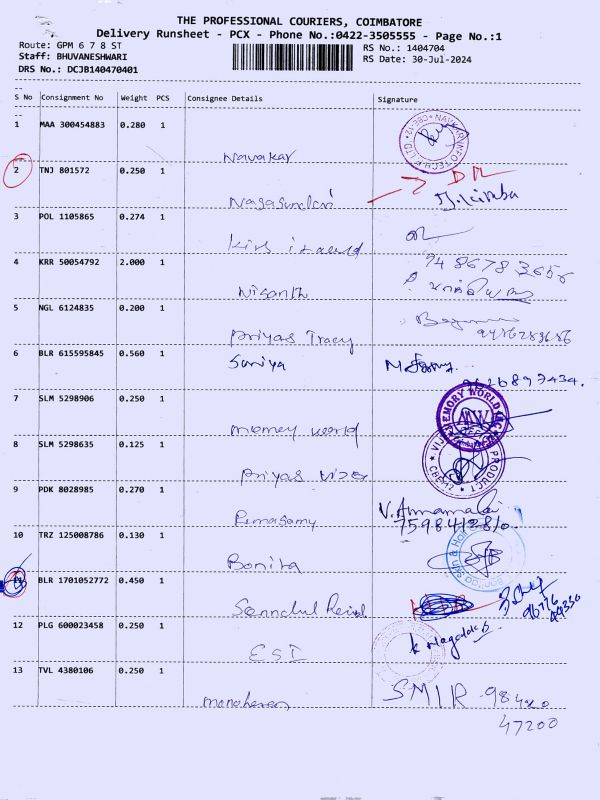 THE PROFESSIONAL COURIERS, COIMBATORE
Delivery Runsheet - PCX - Phone No.:0422-3505555 - Page No.:1
Route: GPM 6 7 8 ST
RS No.: 1404704
Staff: BHUVANESHWARI
RS Date: 30-Jul-2024
DRS No.: DCJB140470401
S No Consignment No Weight PCS Consignee Details Signature
1 MAA 300454883 0.280 1
Navakar
2 TNJ 801572 0.250 1
DL
3 POL 1105865 0.274 1
4 KRR 50054792 2.000 1
94 86783656
Nisanth
5 NGL 6124835 0.200 1
Priyas Tracy
6 BLR 615595845 0.560 1
Soniya
9626897434.
7 SLM 5298906 0.250 1
MEMORY WORLD
MW
momey world
8 SLM 5298635 0.125 1
Priyas
9 PDK 8028985 0.270 1
V. Annamalai
7598412810
Rmasamy
10 TRZ 125008786 0.130 1
Bonita
11 BLR 1701052772 0.450 1
12 PLG 600023458 0.250 1
K Nagaraj
ESI
13 TVL 4380106 0.250 1
SMIR 98420
47200
manoharan